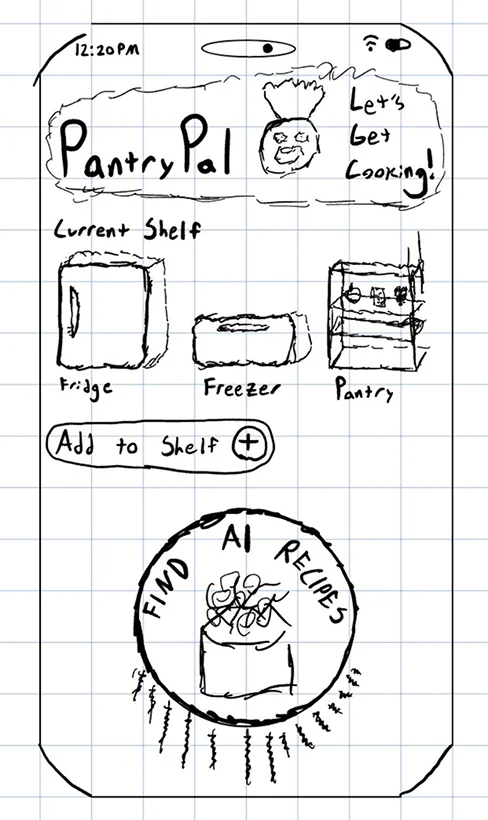 12:20PM
PantryPal
Let's
Get
Cooking!
Current Shelf
Fridge
Freezer
Pantry
Add to Shelf +
FIND AI RECIPES